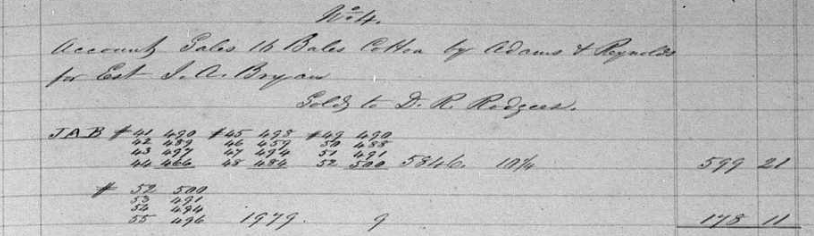 No 4.
Account Sales 16 Bales Cotton by Adams & Reynolds
for Est J. A. Bryan
Sold to D. R. Rodgers.
JAB # 41 490 # 45 498 # 49 490
42 489 46 459 50 488
43 497 47 494 51 491
44 466 48 484 52 500 5846. 10¼ 599 21
# 52 500
53 491
54 494
55 494 1979. 9 178 11